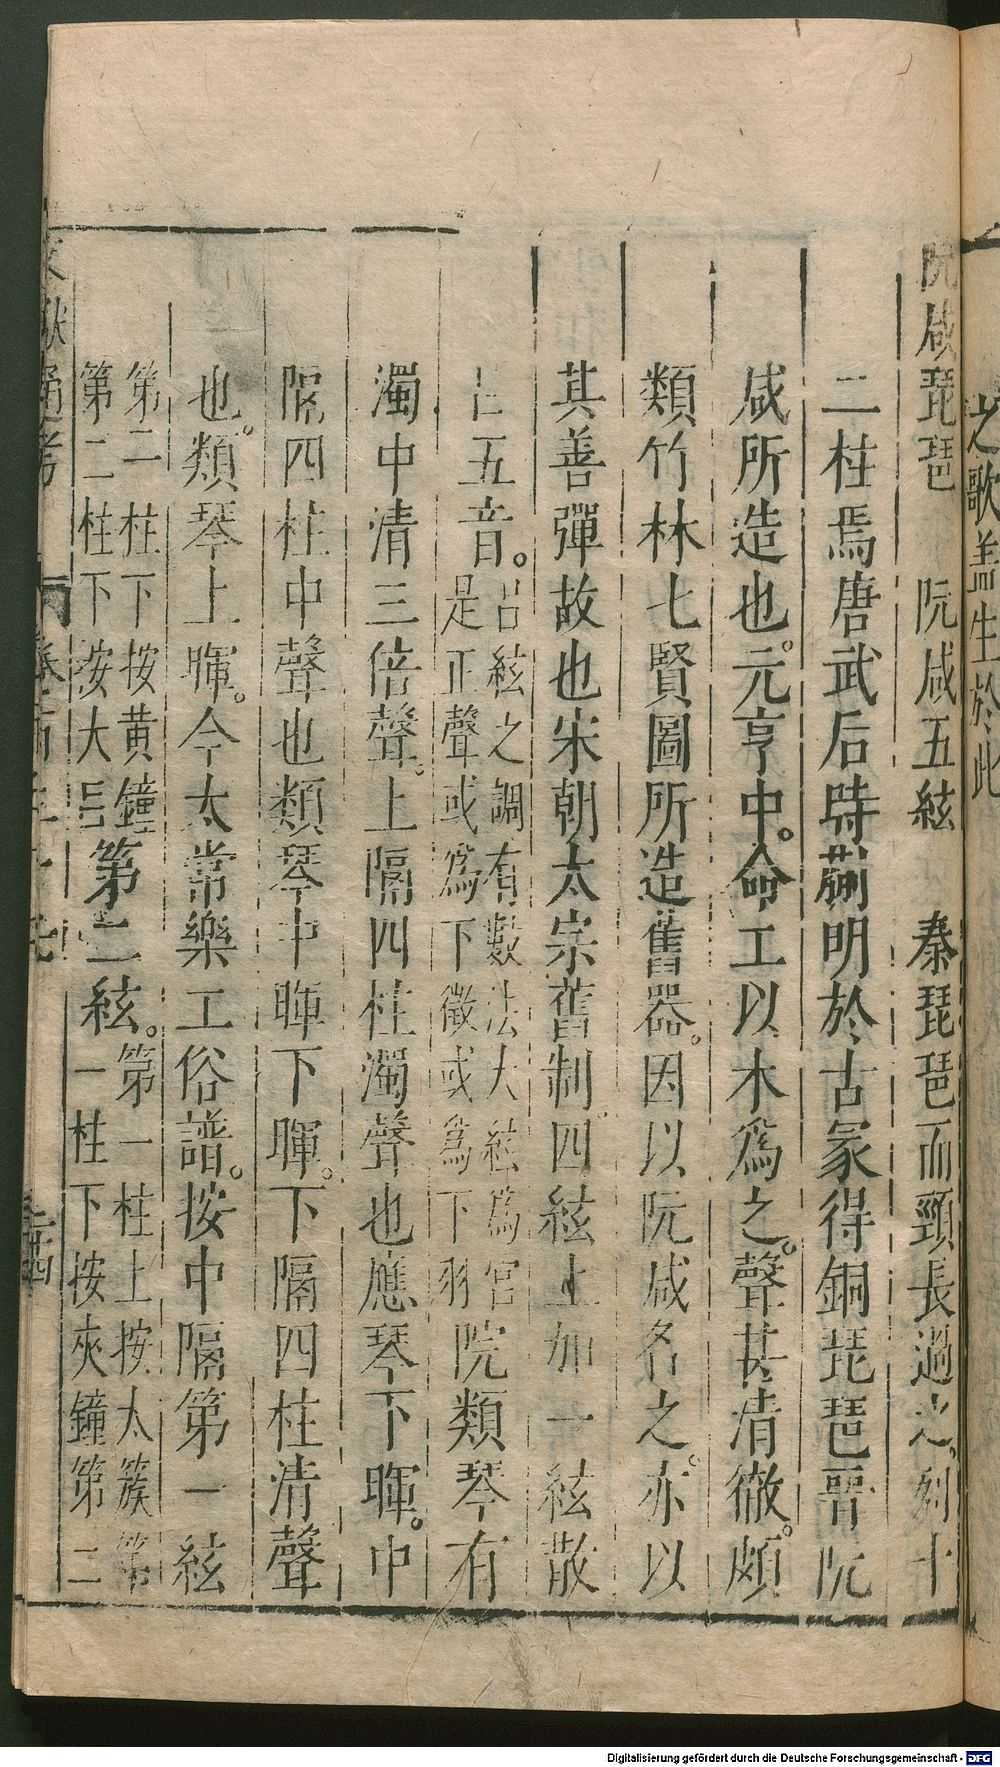 之歌蓋生於此
阮咸琵琶　阮咸五絃　秦琵琶而頸長過之。列十
二柱焉唐武后時蒯明於古冢得銅琵琶晉阮
咸所造也。元亨中。命工以木爲之。聲甚清徹。頗
類竹林七賢圖所造舊器。因以阮咸名之。亦以
其善彈故也宋朝太宗舊制。四絃上加一絃散
呂五音。呂絃之調有數法大絃爲宮
是正聲或爲下徵或爲下羽
阮類琴有
濁中清三倍聲。上隔四柱濁聲也應琴下暉。中
隔四柱中聲也類琴中暉下暉。下隔四柱清聲
也。類琴上暉。今太常樂工俗譜。按中隔第一絃
第一柱下按黃鐘
第二柱下按大呂
第二絃。
第一柱上按太簇第
一柱下按夾鐘第二
文獻通考
卷一百三十七
二十四
Digitalisierung gefördert durch die Deutsche Forschungsgemeinschaft - DFG